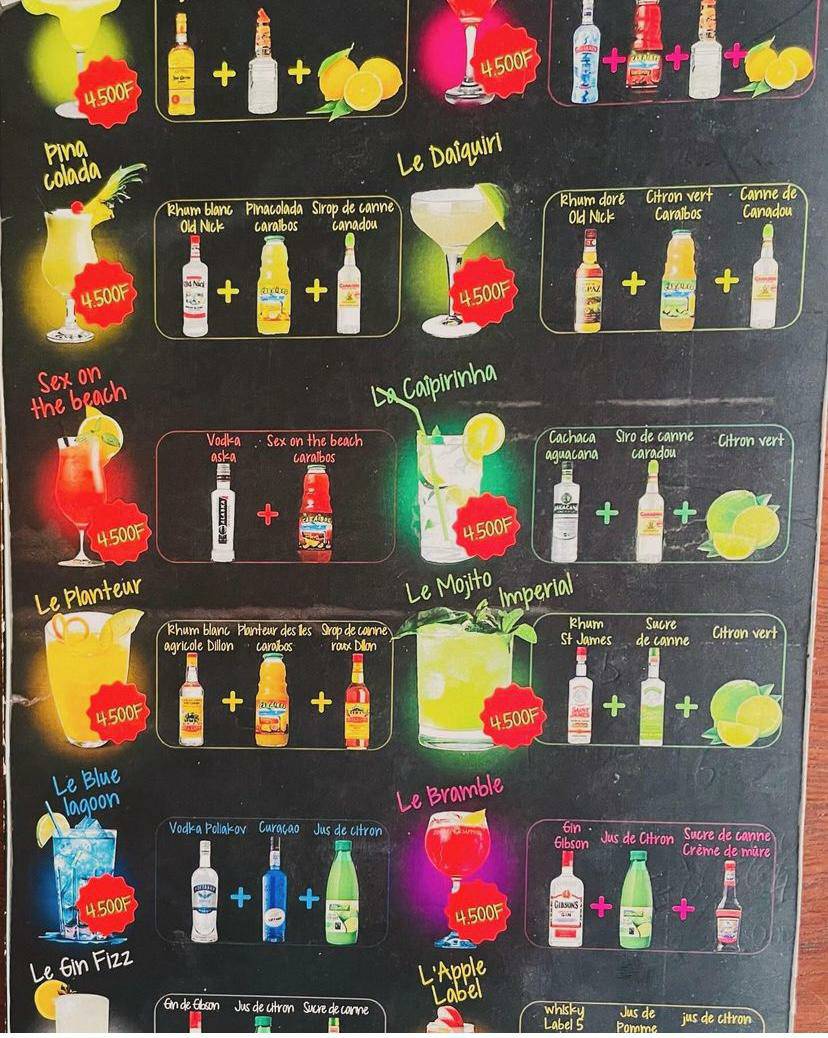 4.500F
4.500F
Pina
colada
Rhum blanc
Old Nick
Pinacolada
caraïbos
Sirop de canne
canadou
4.500F
Le Daïquiri
Rhum doré
Old Nick
Citron vert
Caraïbos
Canne de
Canadou
4.500F
Sex on
the beach
Vodka
aska
Sex on the beach
caraïbos
4.500F
La Caïpirinha
Cachaca
aguacana
Siro de canne
caradou
Citron vert
4.500F
Le Planteur
Rhum blanc
agricole Dillon
Planteur des îles
caraïbos
Sirop de canne
roux Dillon
4.500F
Le Mojito Imperial
Rhum
St James
Sucre
de canne
Citron vert
4.500F
Le Blue
lagoon
Vodka Poliakov
Curaçao
Jus de citron
4.500F
Le Bramble
Gin
Gibson
Jus de Citron
Sucre de canne
Crème de mûre
4.500F
Le Gin Fizz
Gin de Gibson
Jus de citron
Sucre de canne
L'Apple
Label
whisky
Label 5
Jus de
Pomme
jus de citron